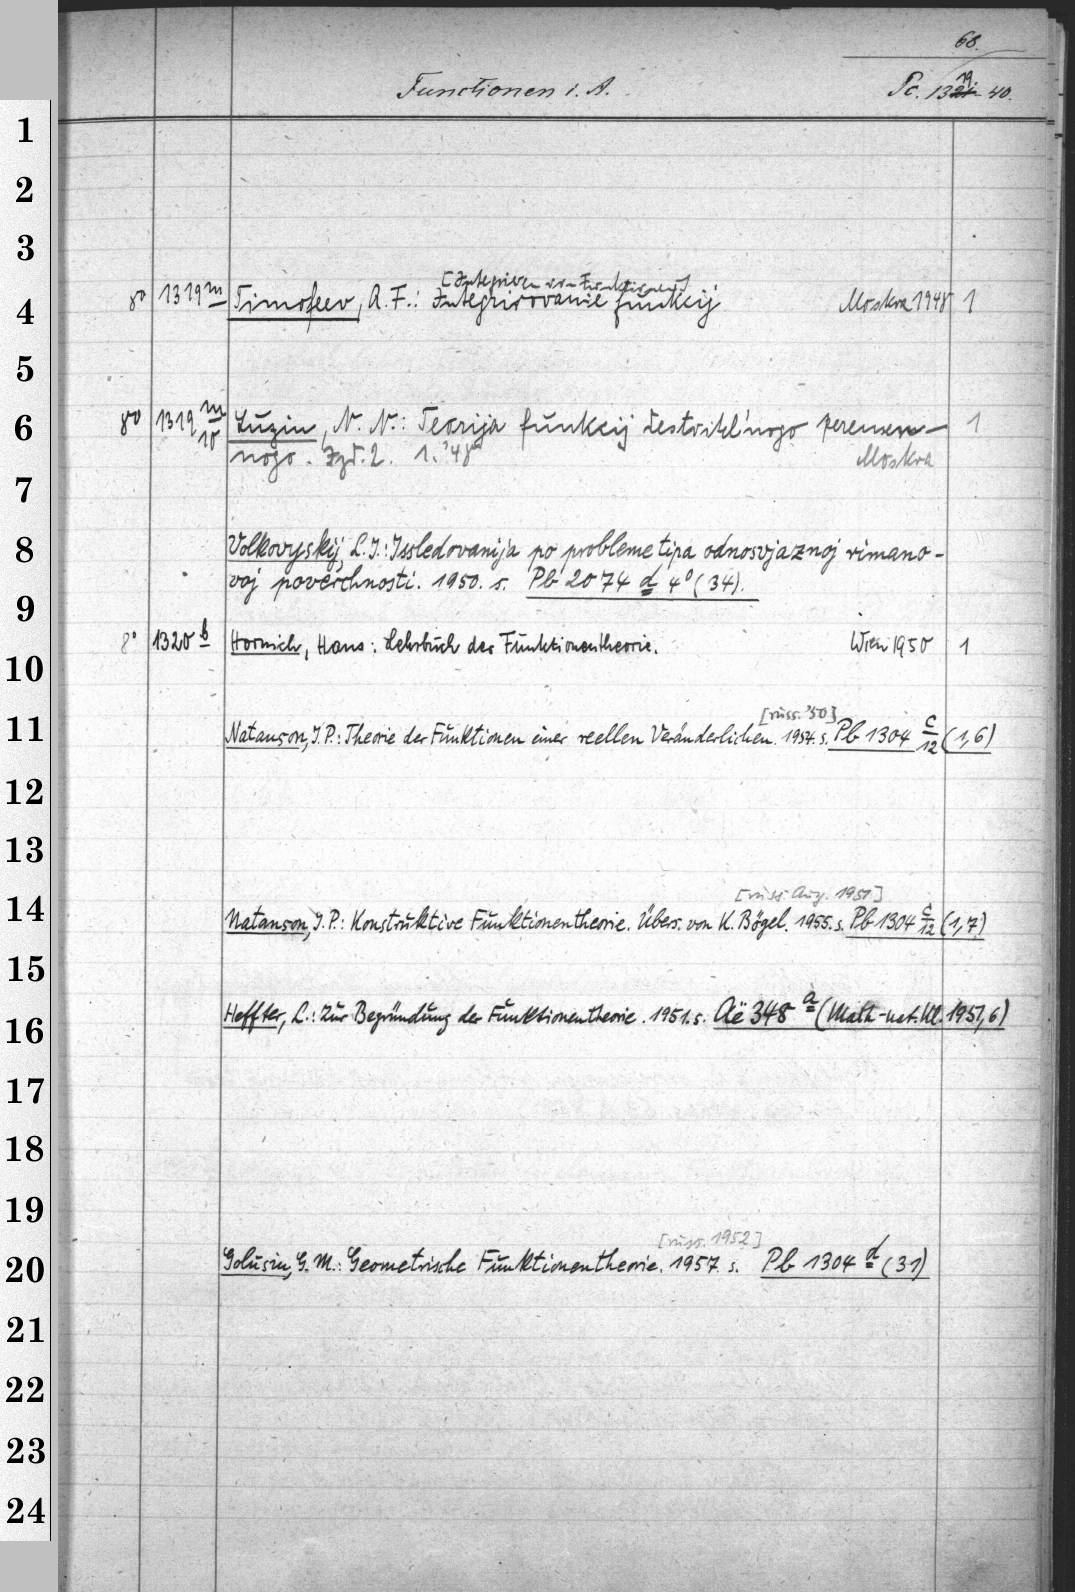 68.
Functionen i. A.
Pc. 1319. 40.
1
2
3
[Integrieren von Funktionen]
4 8° 1319 m Timofeev, A. F.: Integrirovanie funkcij Moskva 1948 1
5
6 8° 1319 m/10 Luzin, N. N.: Teorija funkcij dejstvitel'nogo peremen- 1
nogo. Izd. 2. 1. '48 Moskva
7
8 Volkovyskij, L. I.: Issledovanija po probleme tipa odnosvjaznoj rimano-
voj poverchnosti. 1950. s. Pb 2074 d 4° (34).
9
8° 1320 b Hornich, Hans: Lehrbuch der Funktionentheorie. Wien 1950 1
10
[russ. '50]
11 Natanson, I. P.: Theorie der Funktionen einer reellen Veränderlichen. 1954. s. Pb 1304 c/12 (1,6)
12
13
[russ. Ausg. 1951]
14 Natanson, I. P.: Konstruktive Funktionentheorie. Übers. von K. Bögel. 1955. s. Pb 1304 c/12 (1,7)
15
16 Heffter, L.: Zur Begründung der Funktionentheorie. 1951. s. Aë 348 a (Math-nat. Kl. 1951,6)
17
18
19
[russ. 1952]
20 Golusin, G. M.: Geometrische Funktionentheorie. 1957. s. Pb 1304 d (31)
21
22
23
24